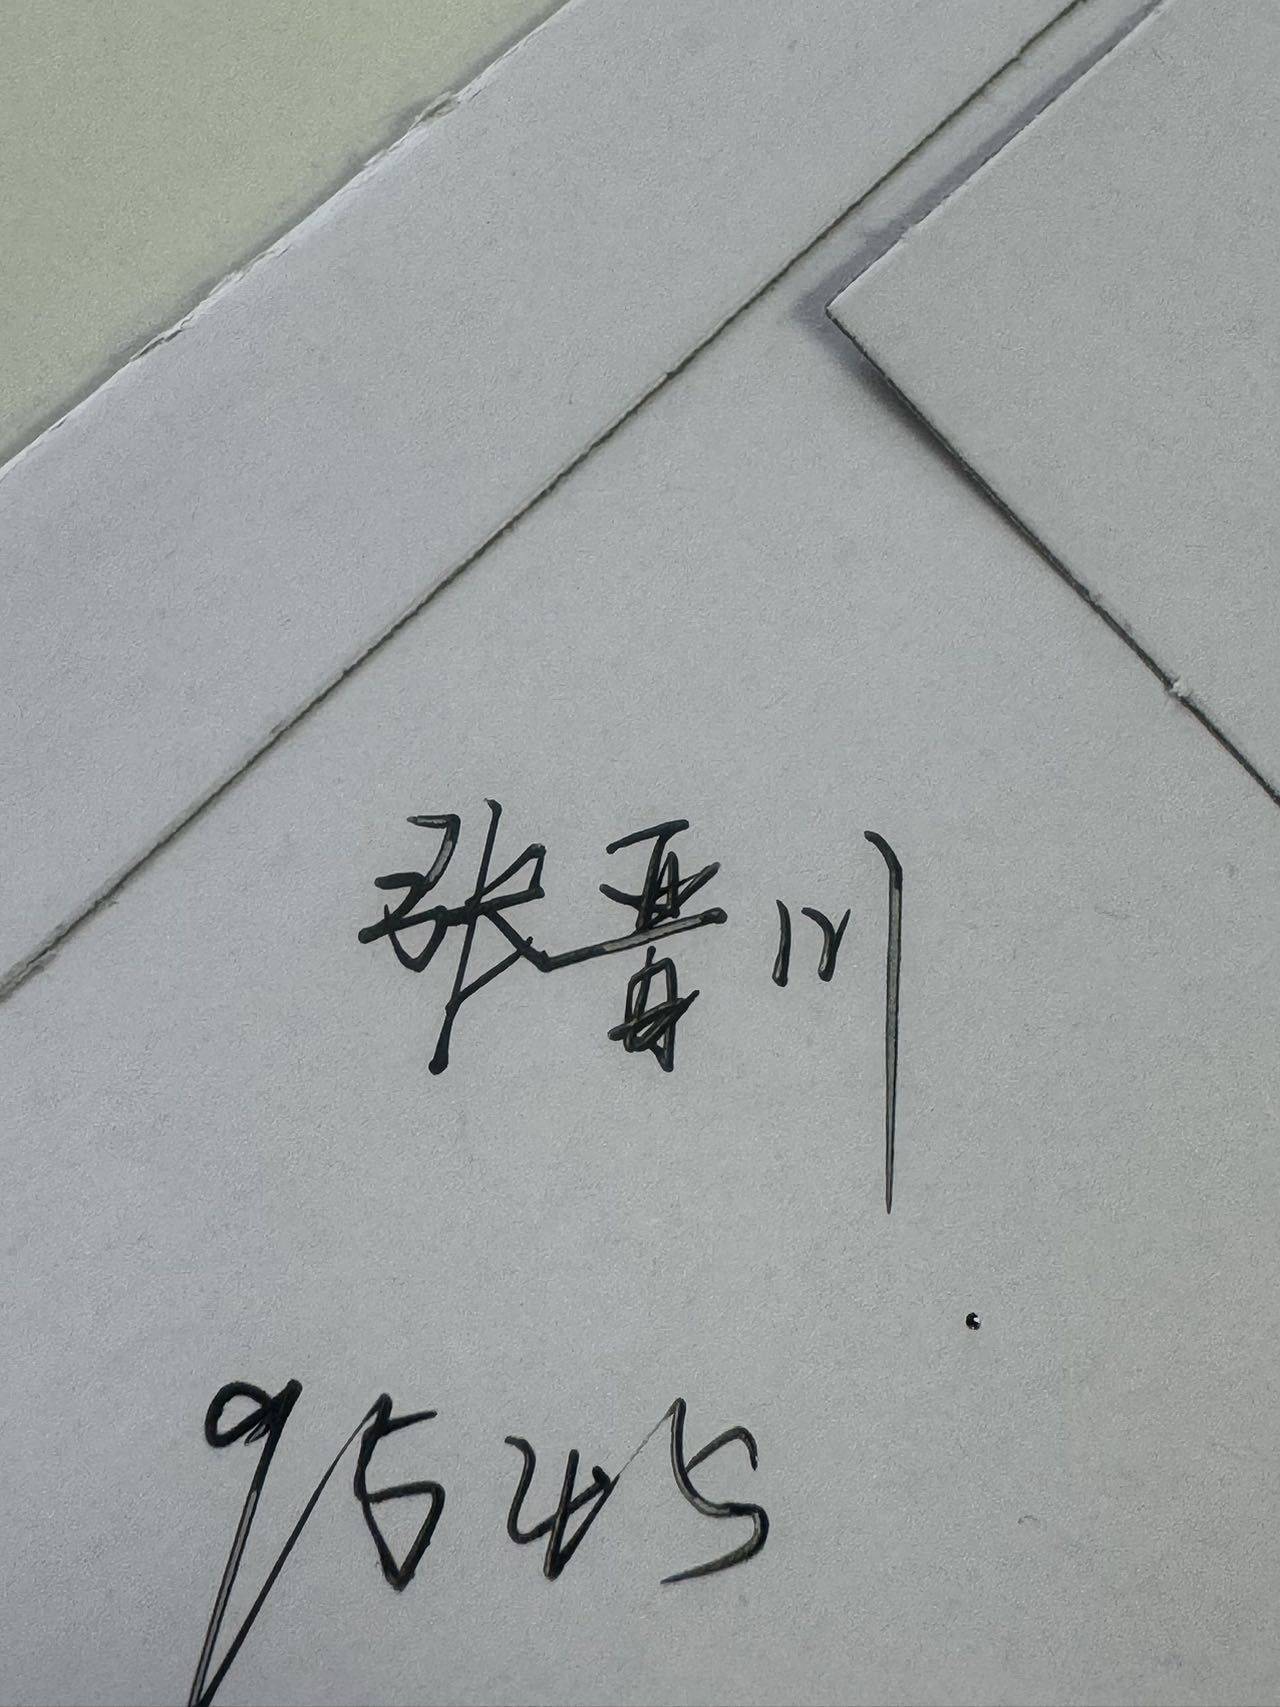 张晋川
9545